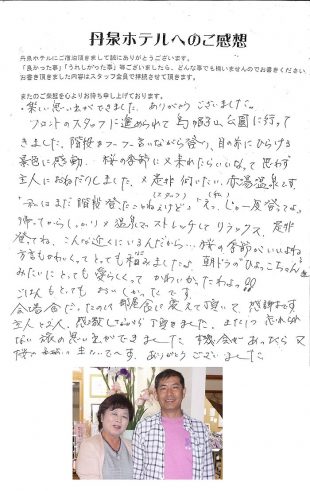 丹泉ホテルへのご感想
丹泉ホテルにご宿泊頂きまして誠にありがとうございます。
「良かった事」「うれしかった事」等ございましたら、どんな事でも構いませんのでお書きください
お書き頂きました内容はスタッフ全員で拝読させて頂きます。
またのご来館を心よりお待ち申し上げております。
・楽しい思い出ができました。ありがとうございました。
フロントのスタッフに進められて烏帽子山公園に行って
きました。階段をフーフー言いながら登り、目の前にひろげる
景色に感動。桜の季節に又来れたらいいなって思わず
主人におねだりしました。又是非伺いたい赤湯温泉です。
(スタッフ)
「私はまだ階段登ったことねえけど」「えっ、じゃ一度登ってよ。
帰ってからしっかり温泉でストレッチしてリラックス。是非
登ってね。こんな近くにいるんだから…桜の季節がいいよね
方言もかわいくってとても和みましたよ。朝ドラの「ひよっこちゃん」
みたいにとっても愛らしくって かわいかったわよ!!
ごはんもとてもおいしかったです。
会場食だったのに部屋食に変えて頂いて、感謝です
主人と2人、感激しながら頂きました。また1つ忘れられ
ない旅の思い出ができました。機会があったら又
ありがとうございました。